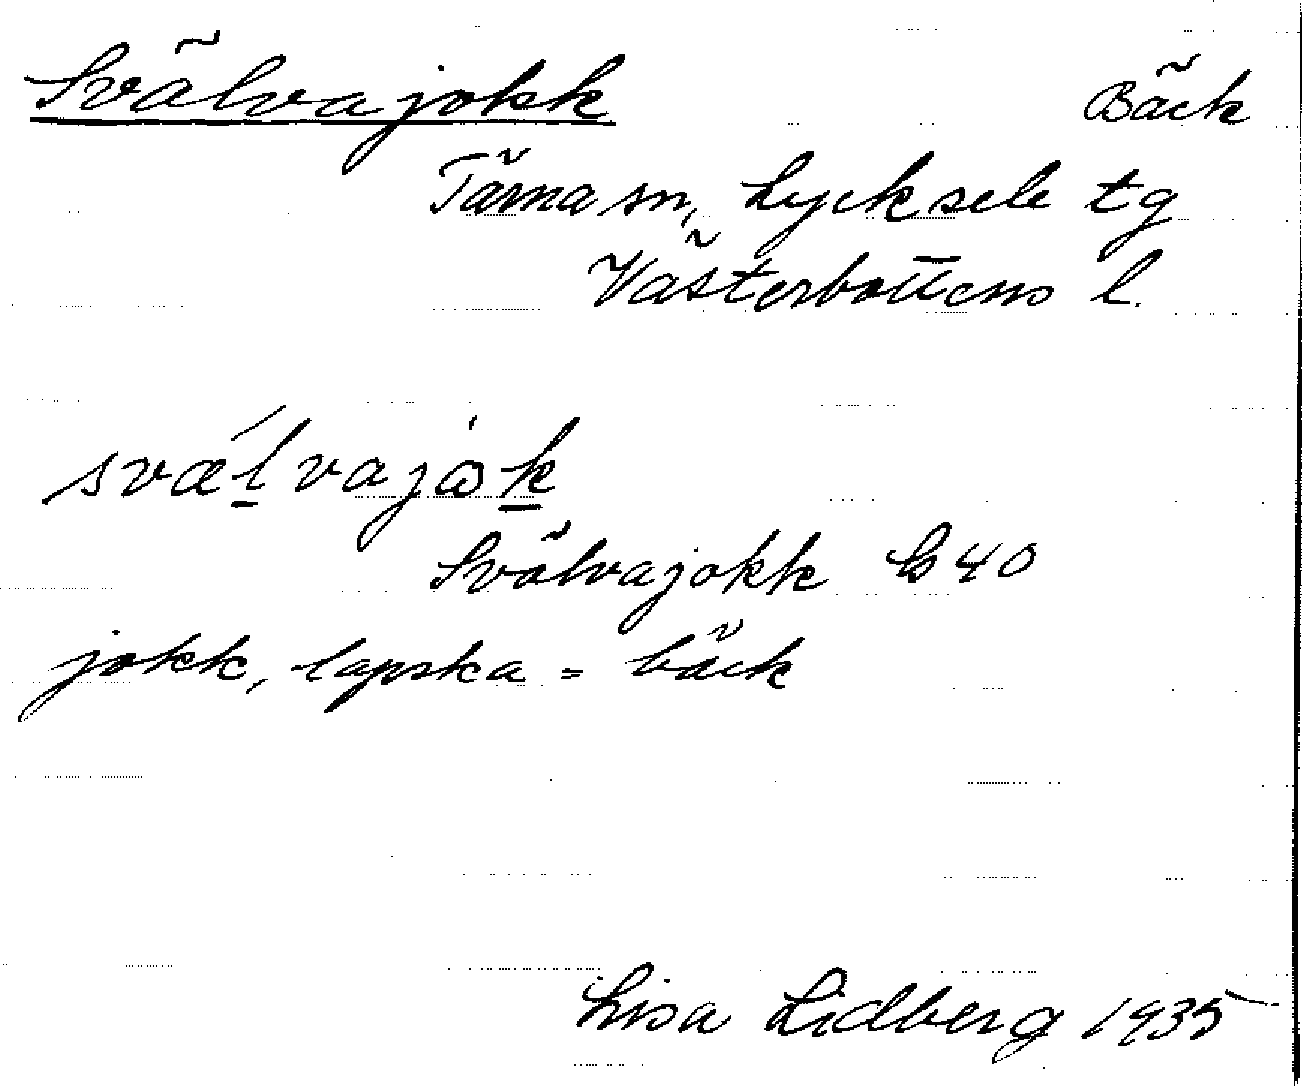 Svälvajokk Bäck
Tärna sn, Lycksele tg
Västerbottens l.
svæĺvajȧk
Svälvajokk G 40
jokk, lapska = bäck
Lisa Lidberg 1935